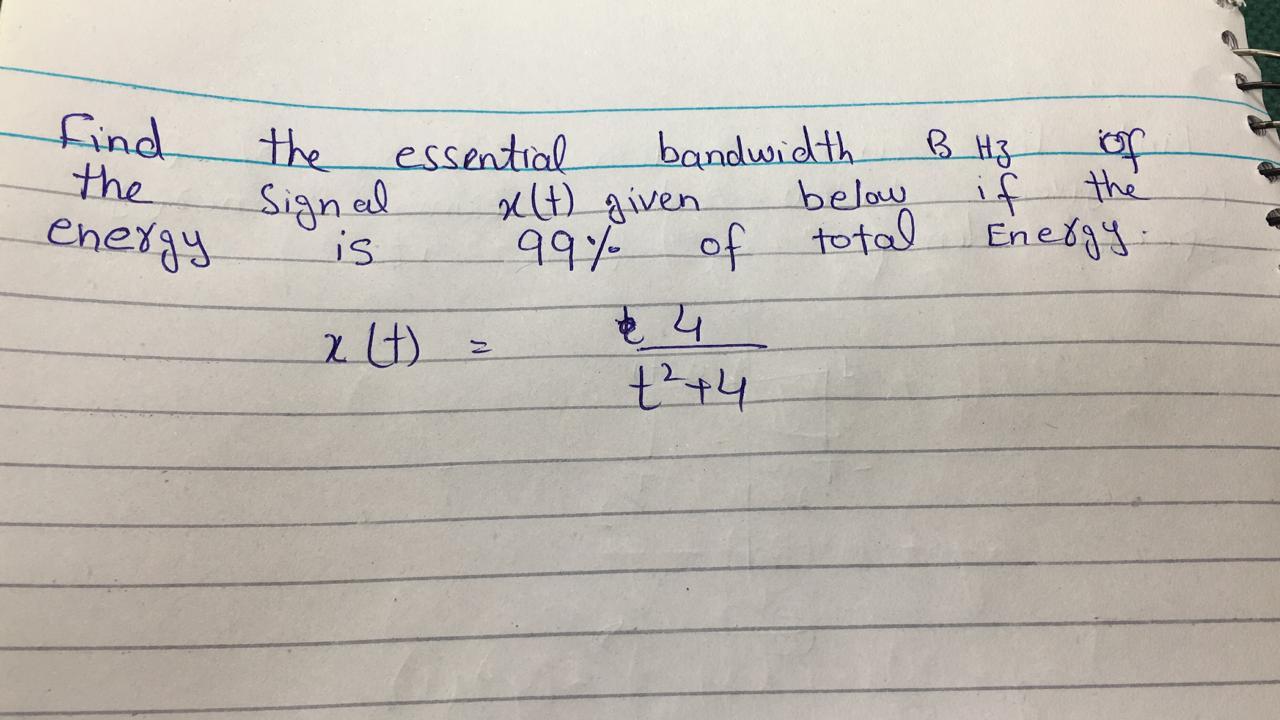 Find the essential bandwidth B Hz of
the signal x(t) given below if the
energy is 99% of total Energy.
x(t) = 4
t²+4